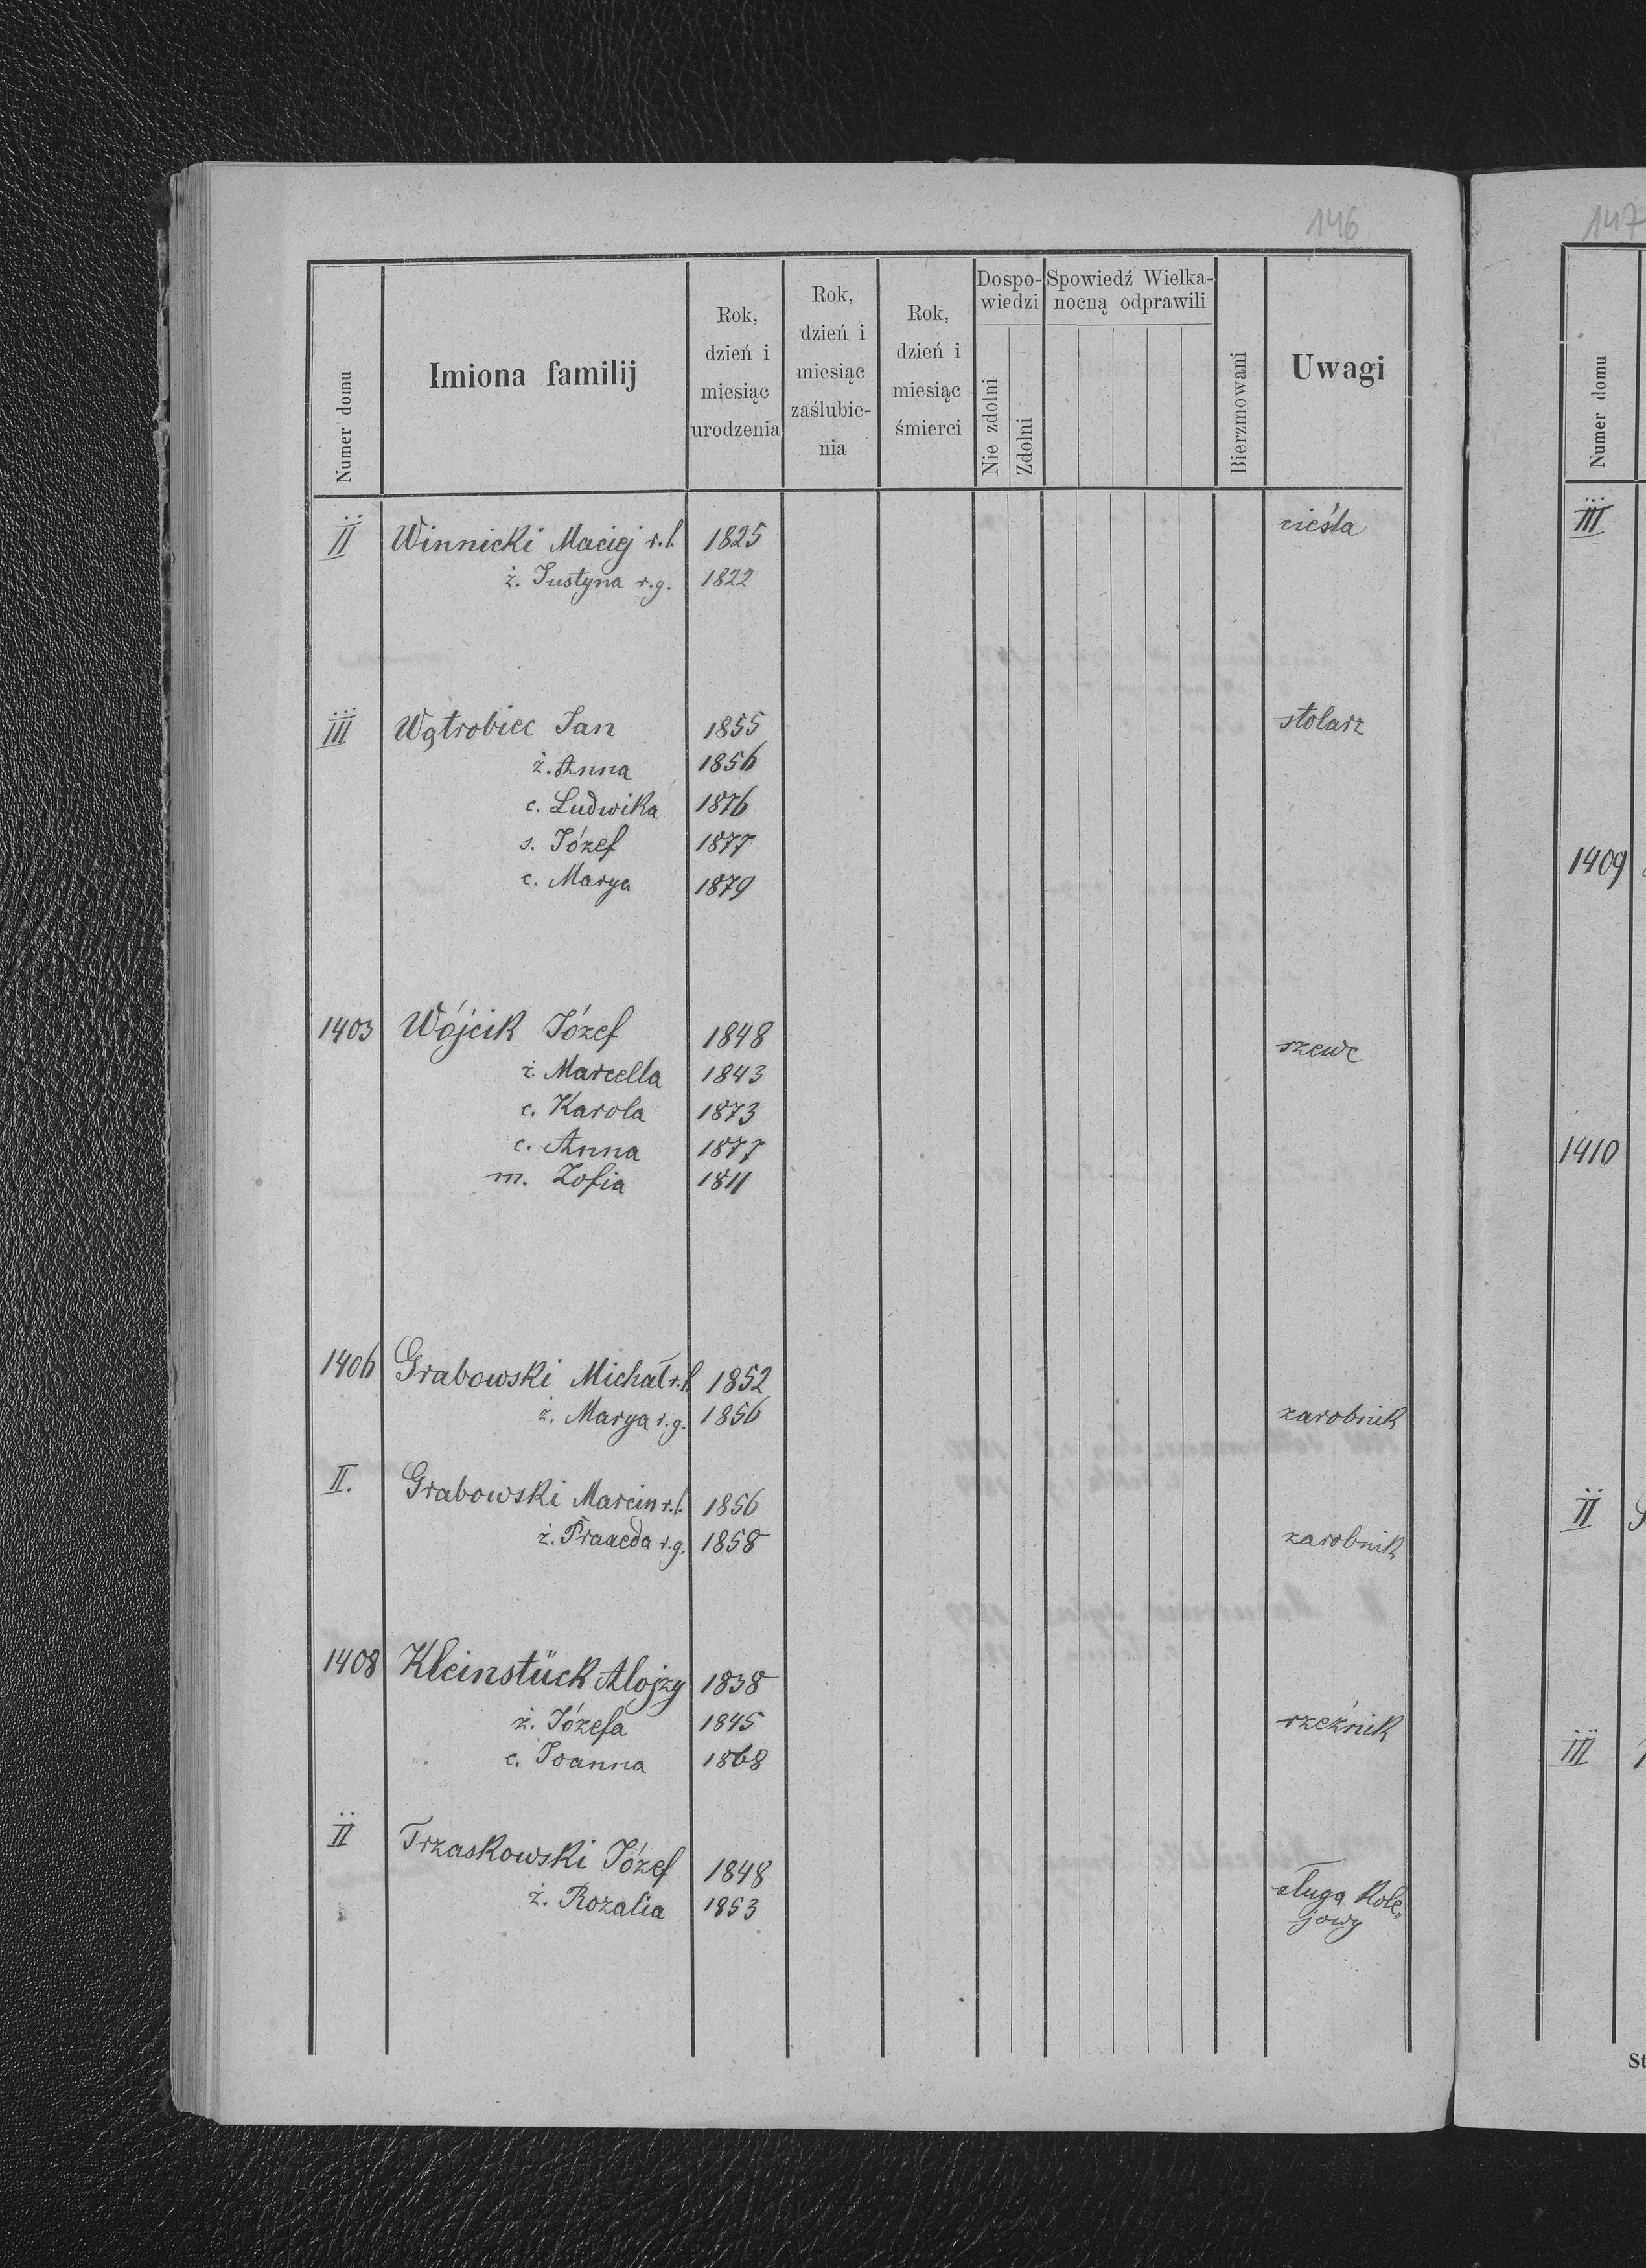 146
147
Numer domu
Imiona familij
Rok, dzień i miesiąc urodzenia
Rok, dzień i miesiąc zaślubie-nia
Rok, dzień i miesiąc śmierci
Dospo-wiedzi
Nie zdolni
Zdolni
Spowiedź Wielka-nocną odprawili
Bierzmowani
Uwagi
Numer domu
II Winnicki Maciej r.l. 1825 cieśla
ż. Justyna r.g. 1822
III Wątrobiec Jan 1855 stolarz
ż. Anna 1856
c. Ludwika 1876
s. Józef 1877
c. Marya 1879
1403 Wójcik Józef 1848 szewc
ż. Marcella 1843
c. Karola 1873
c. Anna 1877
m. Zofia 1811
1406 Grabowski Michał r.l. 1852
ż. Marya r.g. 1856 zarobnik
II. Grabowski Marcin r.l. 1856
ż. r.g. 1858 zarobnik
1408 Kleinstück Alojzy 1838
ż. Józefa 1845 rzeźnik
c. Joanna 1868
II Trzaskowski Józef 1848
ż. Rozalia 1853 sługa kole„
jowy
III
1409
1410
II
III
St